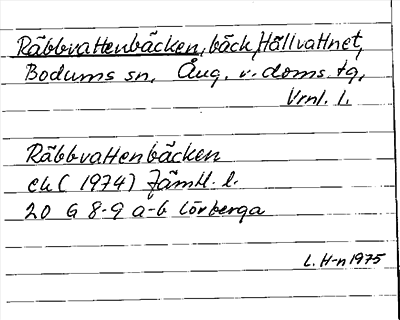 Räbbvattenbäcken, bäck, Hällvattnet,
Bodums sn, Ång. v. doms. tg,
Vrnl. l.
Räbbvattenbäcken
ek (1974) Jämtl. l.
20 G 8-9 a-b Lörberga
L. H-n 1975